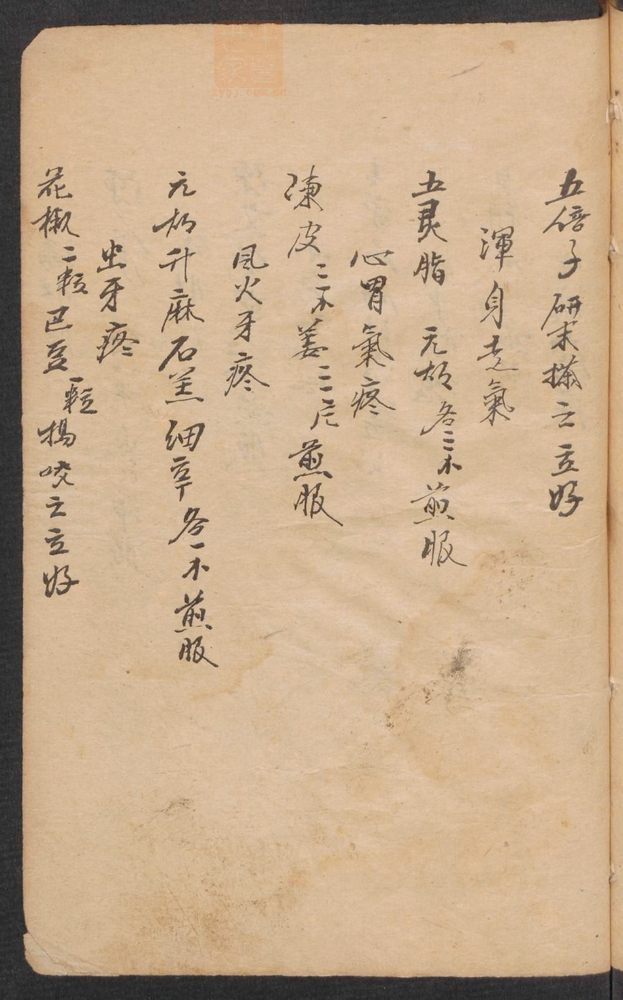 五倍子研末搽之立好
渾身走氣
五灵脂 元胡各三小煎服
心胃氣疼
陳皮三小姜三片煎服
風火牙疼
元胡升麻石羔細辛各一小煎服
虫牙疼
花椒二粒巴豆一粒搗咬之立好